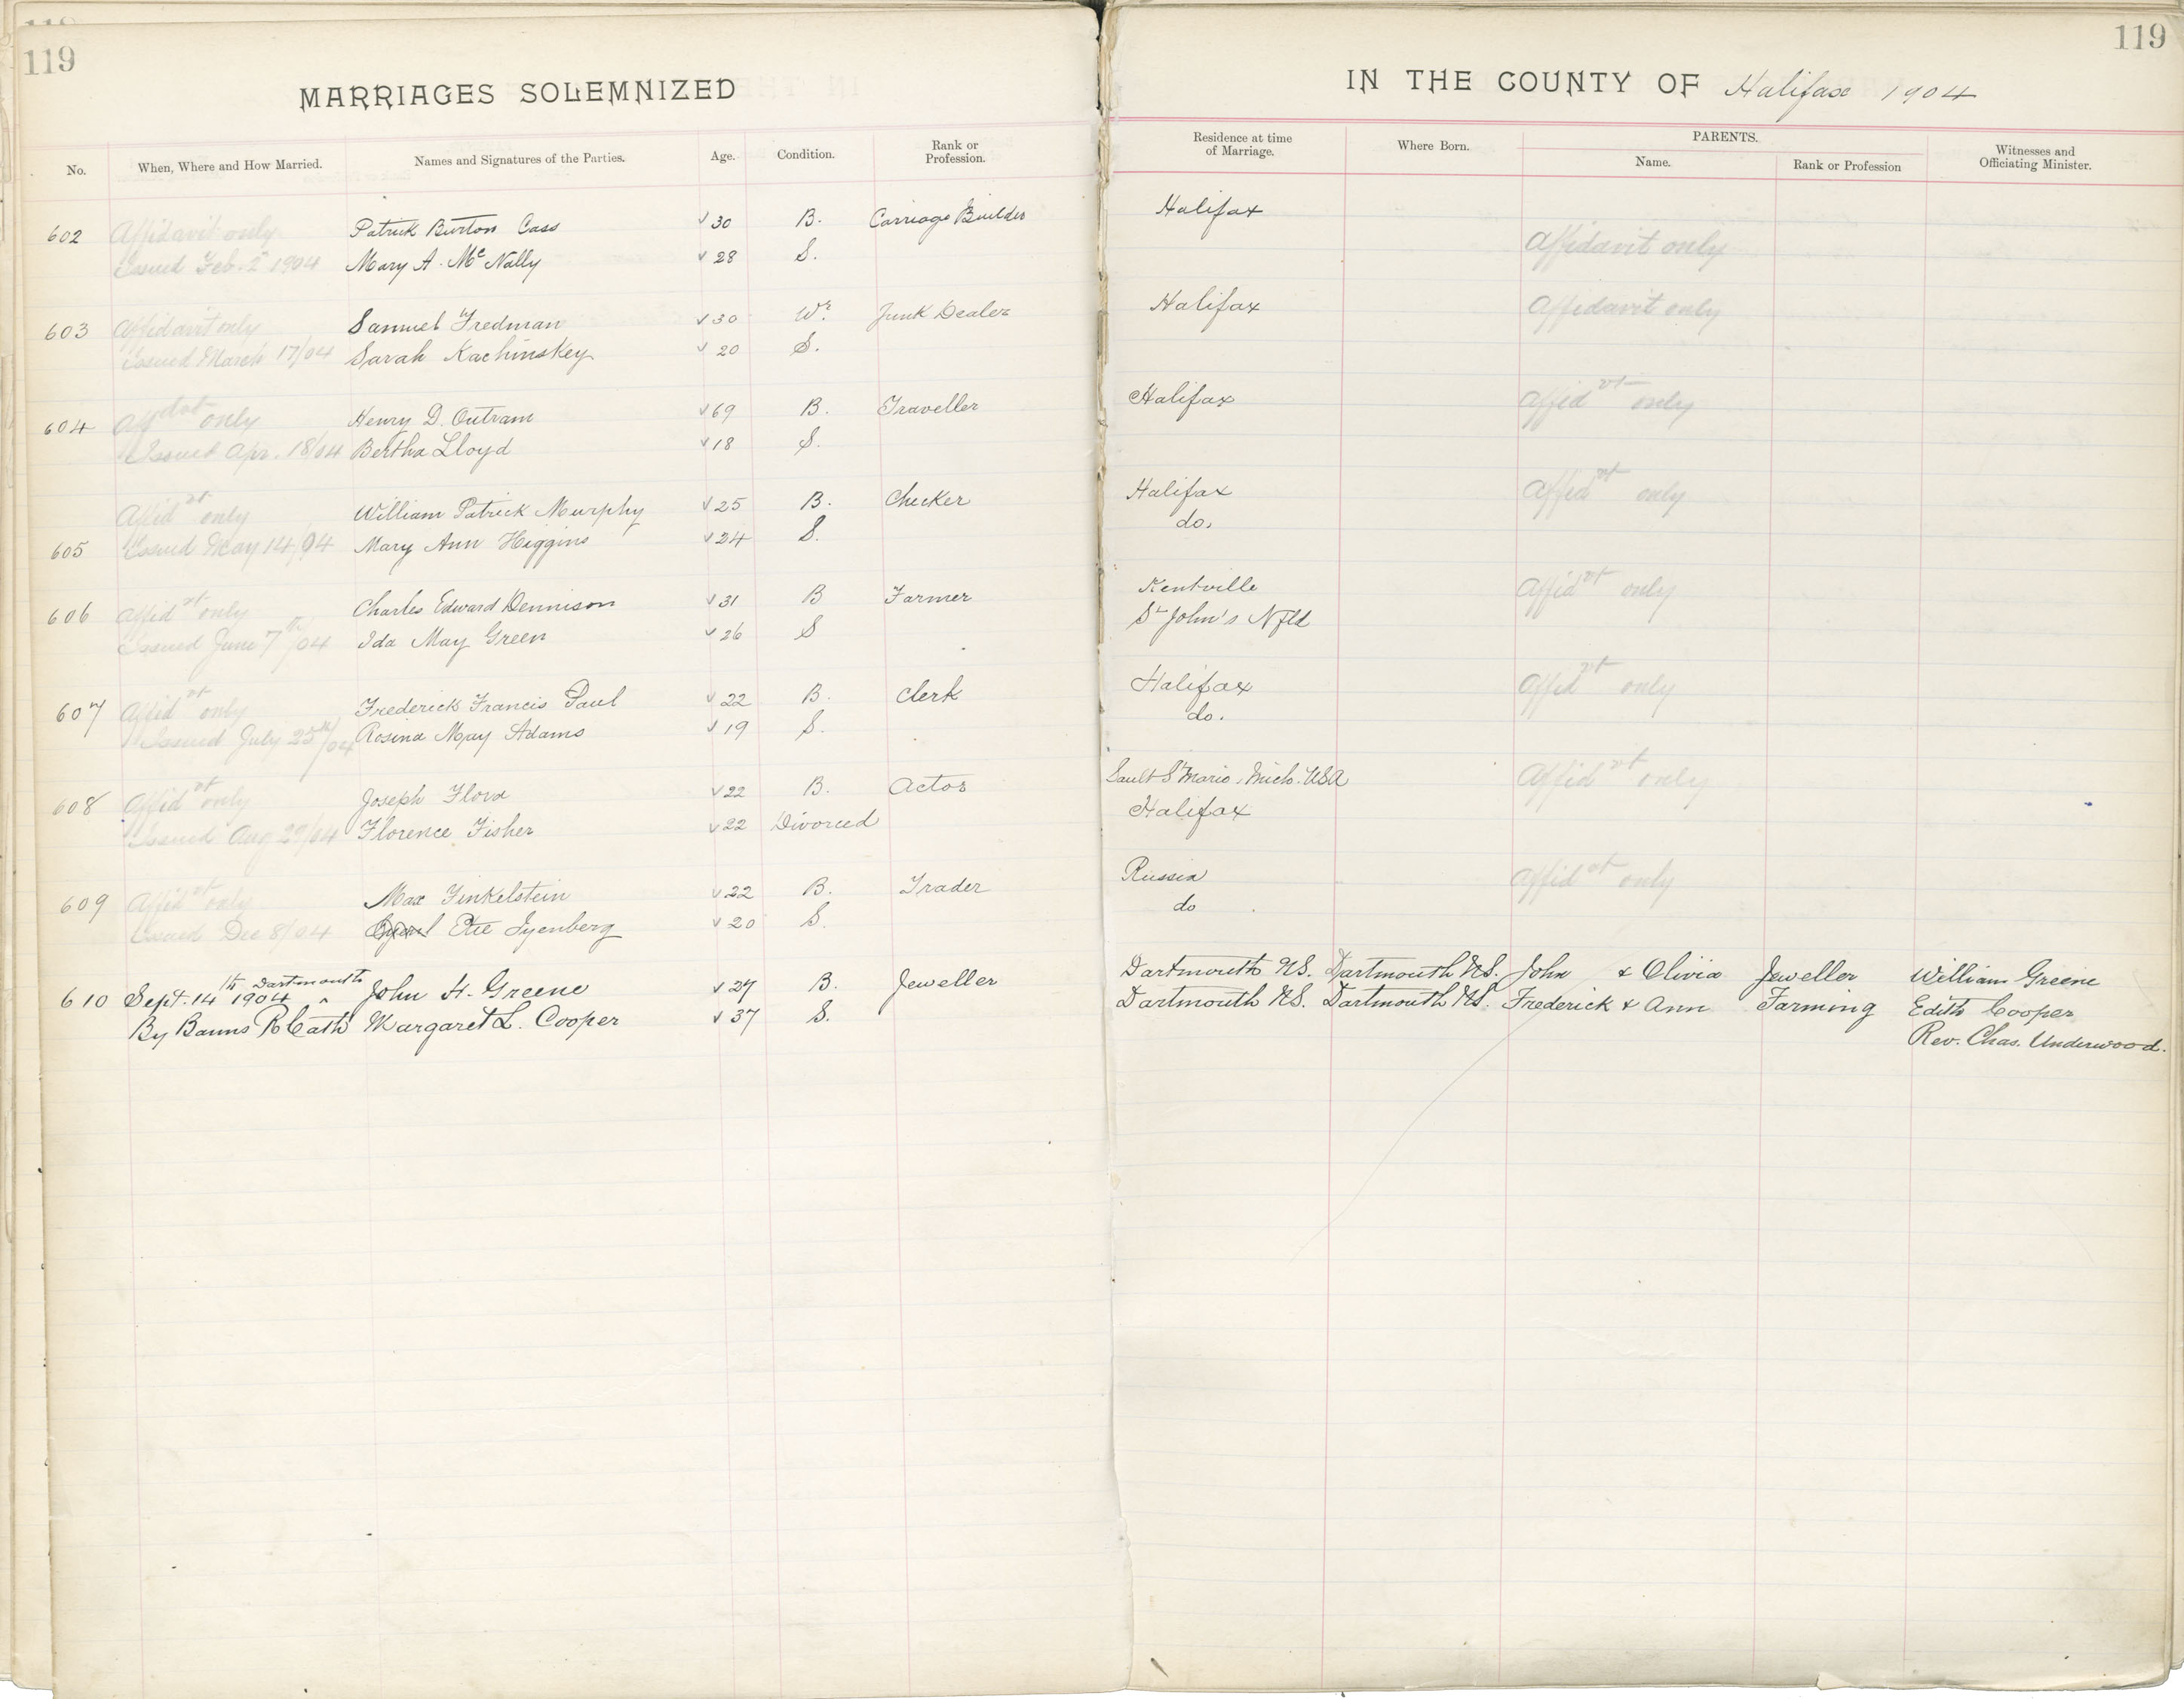 119
MARRIAGES SOLEMNIZED
No. When, Where and How Married. Names and Signatures of the Parties. Age. Condition. Rank or Profession.
602 Affidavit only Patrick Burton Cass √ 30 B. Carriage Builder
Issued Feb. 2 1904 Mary A. McNally √ 28 S.
603 Affidavit only Samuel Fredman √ 30 Wr. Junk Dealer
Issued March 17/04 Sarah Kachinskey √ 20 S.
604 Affdvt only Henry D. Outram √ 69 B. Traveller
Issued Apr. 18/04 Bertha Lloyd √ 18 S.
Affidvt only William Patrick Murphy √ 25 B. Checker
605 Issued May 14/04 Mary Ann Higgins √ 24 S.
606 Affidvt only Charles Edward Dennison √ 31 B Farmer
Issued June 7th/04 Ida May Green √ 26 S
607 Affidvt only Frederick Francis Paul √ 22 B. Clerk
Issued July 25th/04 Rosina May Adams √ 19 S.
608 Affidvt only Joseph Flora √ 22 B. Actor
Issued Aug 29/04 Florence Fisher √ 22 Divorced
609 Affidvt only Max Finkelstein √ 22 B. Trader
Issued Dec 8/04 Etie Iyenberg √ 20 S.
610 Sept. 14th 1904 ^ Dartmouth John H. Greene √ 27 B. Jeweller
By Banns R Cath Margaret L. Cooper √ 37 S.
119
IN THE COUNTY OF Halifax 1904
Residence at time of Marriage. Where Born. PARENTS. Name. Rank or Profession Witnesses and Officiating Minister.
Halifax
Affidavit only
Halifax Affidavit only
Halifax Affidvt only
Halifax Affidvt only
do.
Kentville Affidvt only
St John's Nfld
Halifax Affidvt only
do.
Sault St Marie, Mich. USA Affidvt only
Halifax
Russia Affidvt only
do
Dartmouth N.S. Dartmouth N.S. John & Olivia Jeweller William Greene
Dartmouth N.S. Dartmouth N.S. Frederick & Ann Farming Edith Cooper
Rev. Chas. Underwood.